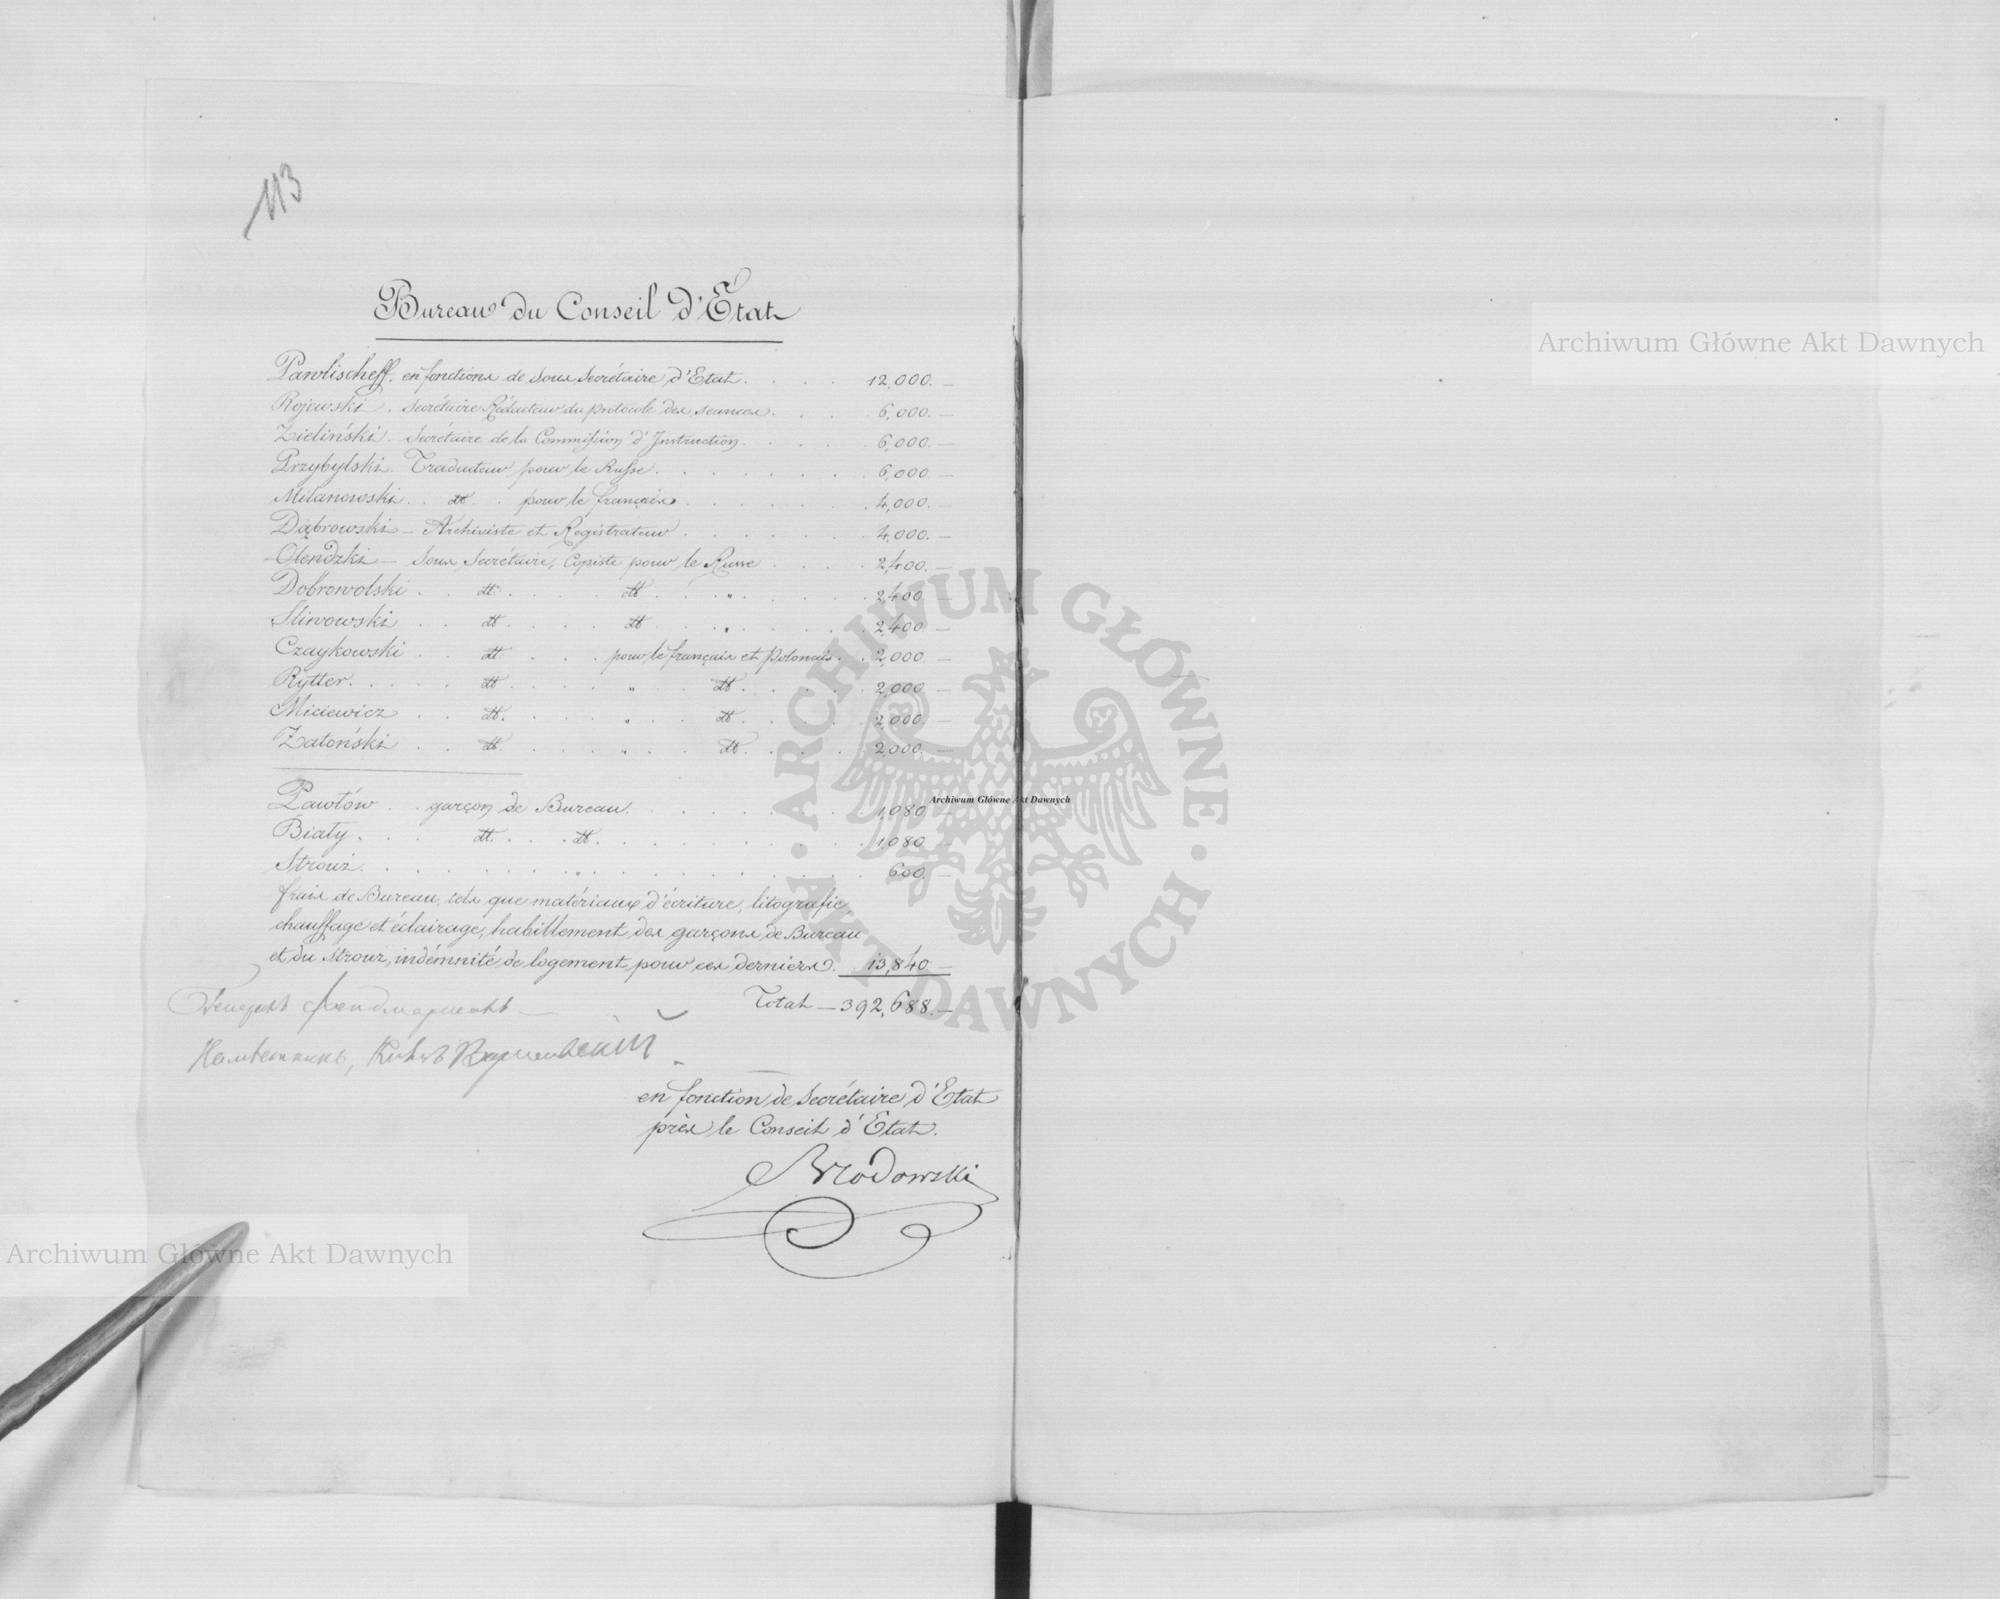 113
Bureau du Conseil d'Etat
Pawlischeff. en fonctions de Sous Secrétaire d'Etat. . . . 12,000.—
Rojewski. Secrétaire Rédacteur du protocole des séances. . . . 6,000.—
Zieliński. Secrétaire de la Commission d'Instruction. . . . . 6,000.—
Przybylski. Traducteur pour le Russe. . . . . . . 6,000.—
Milanowski. . dt . pour le français. . . . . . . 4,000.—
Dąbrowski — Archiviste et Régistrateur . . . . . . . 4,000.—
Olendzki — Sous Secrétaire, Copiste pour le Russe . . . . 2,400.—
Dobrowolski . . dt . . . . dt . . " . . . . . 2,400.—
Sliwowski . . dt . . . . dt . . " . . . . . 2,400.—
Czaykowski . . dt . . . pour le français et Polonais. . . 2,000.—
Rytter. . . . . dt . . . . " . . dt . . . . . 2,000.—
Miciewicz . . dt. . . . . " . . dt . . . . 2,000.—
Zatoński . . dt . . . . " . . dt . . . . 2,000.—
Pawłów . . garçon de Bureau. . . . . . . . 1,080.—
Biały . . . dt. . . . dt. . . . . . . . . 1,080.—
Strouż. . . . . . . " . . . . . . . . . 600.—
frais de Bureau, tels que matériaux d'écriture, litografie,
chauffage et éclairage, habillement des garçons de Bureau
et du Strouż, indémnité de logement pour ces derniers. . 13,840.—
Total — 392,688.—
Генералъ Фельдмаршалъ
Намѣстникъ, Князь Варшавскій
en fonction de Secrétaire d'Etat
près le Conseil d'Etat.
Brodowski
Archiwum Główne Akt Dawnych
Archiwum Główne Akt Dawnych
Archiwum Główne Akt Dawnych
· ARCHIWUM GŁÓWNE · AKT DAWNYCH